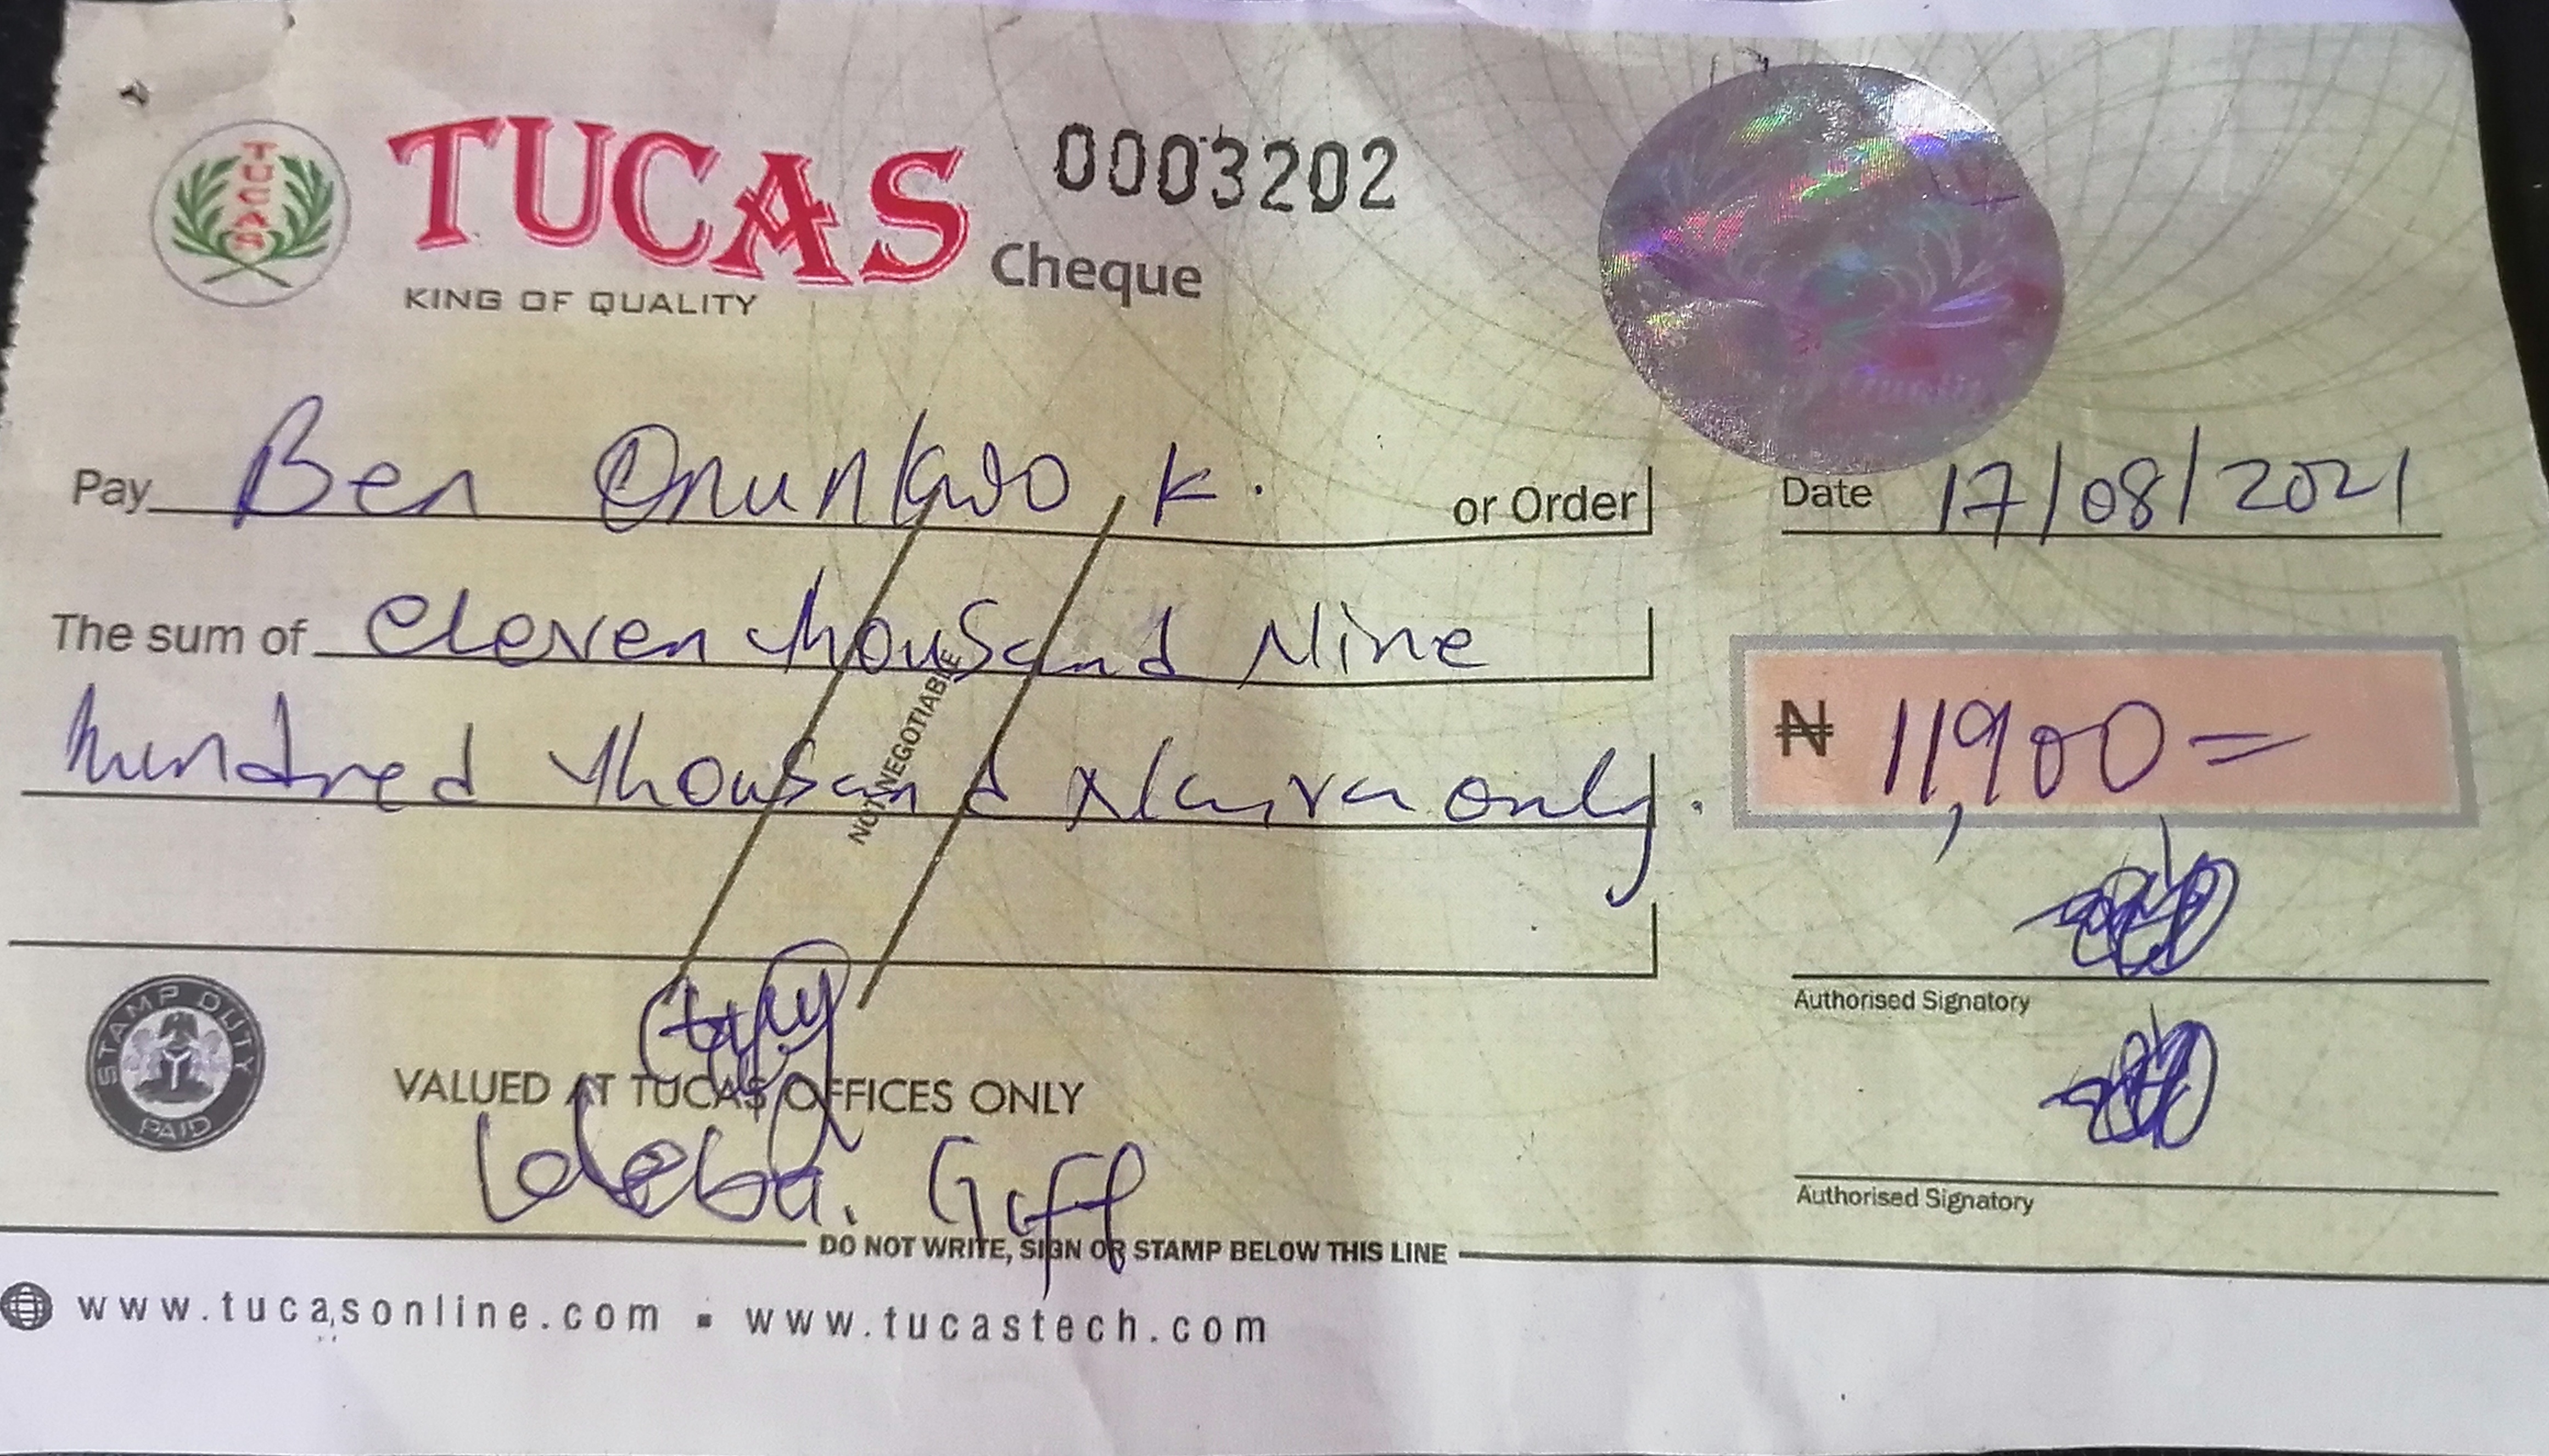 TUCAS
TUCAS 0003202
KING OF QUALITY Cheque
Pay Ben Onunkwo K. or Order Date 17/08/2021
The sum of eleven thousand Nine
hundred thousand Naira only. ₦ 11,900=
NOT NEGOTIABLE
Authorised Signatory
STAMP DUTY
PAID
VALUED AT TUCAS OFFICES ONLY
Authorised Signatory
DO NOT WRITE, SIGN OR STAMP BELOW THIS LINE
www.tucasonline.com ▪ www.tucastech.com